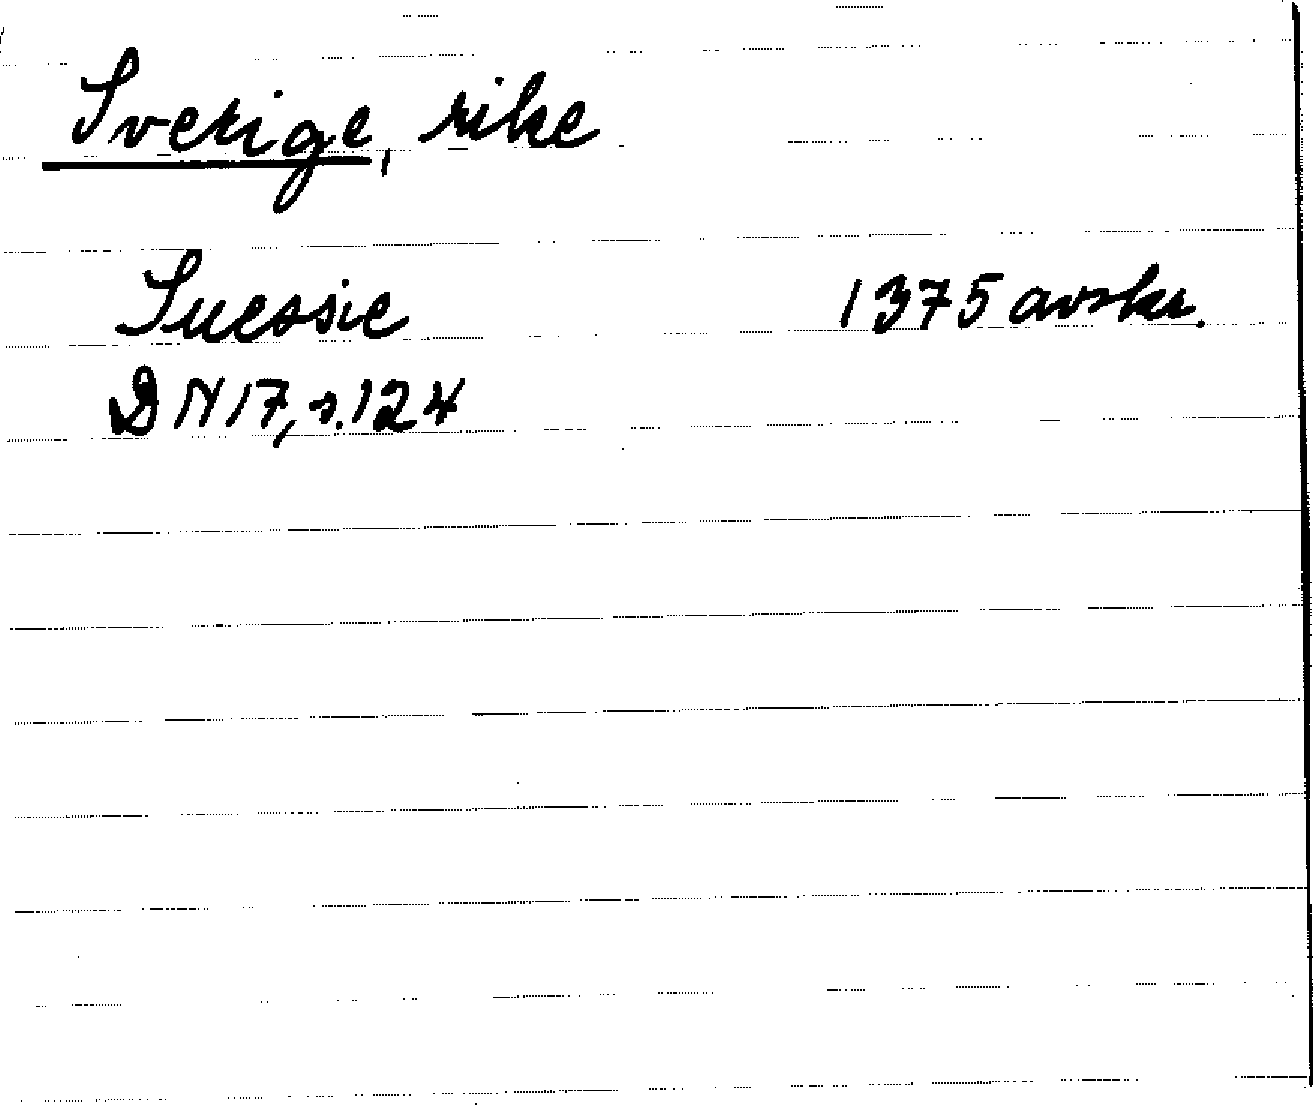 Sverige, rike
Suessie 1375 avskr.
DN 17, s. 124